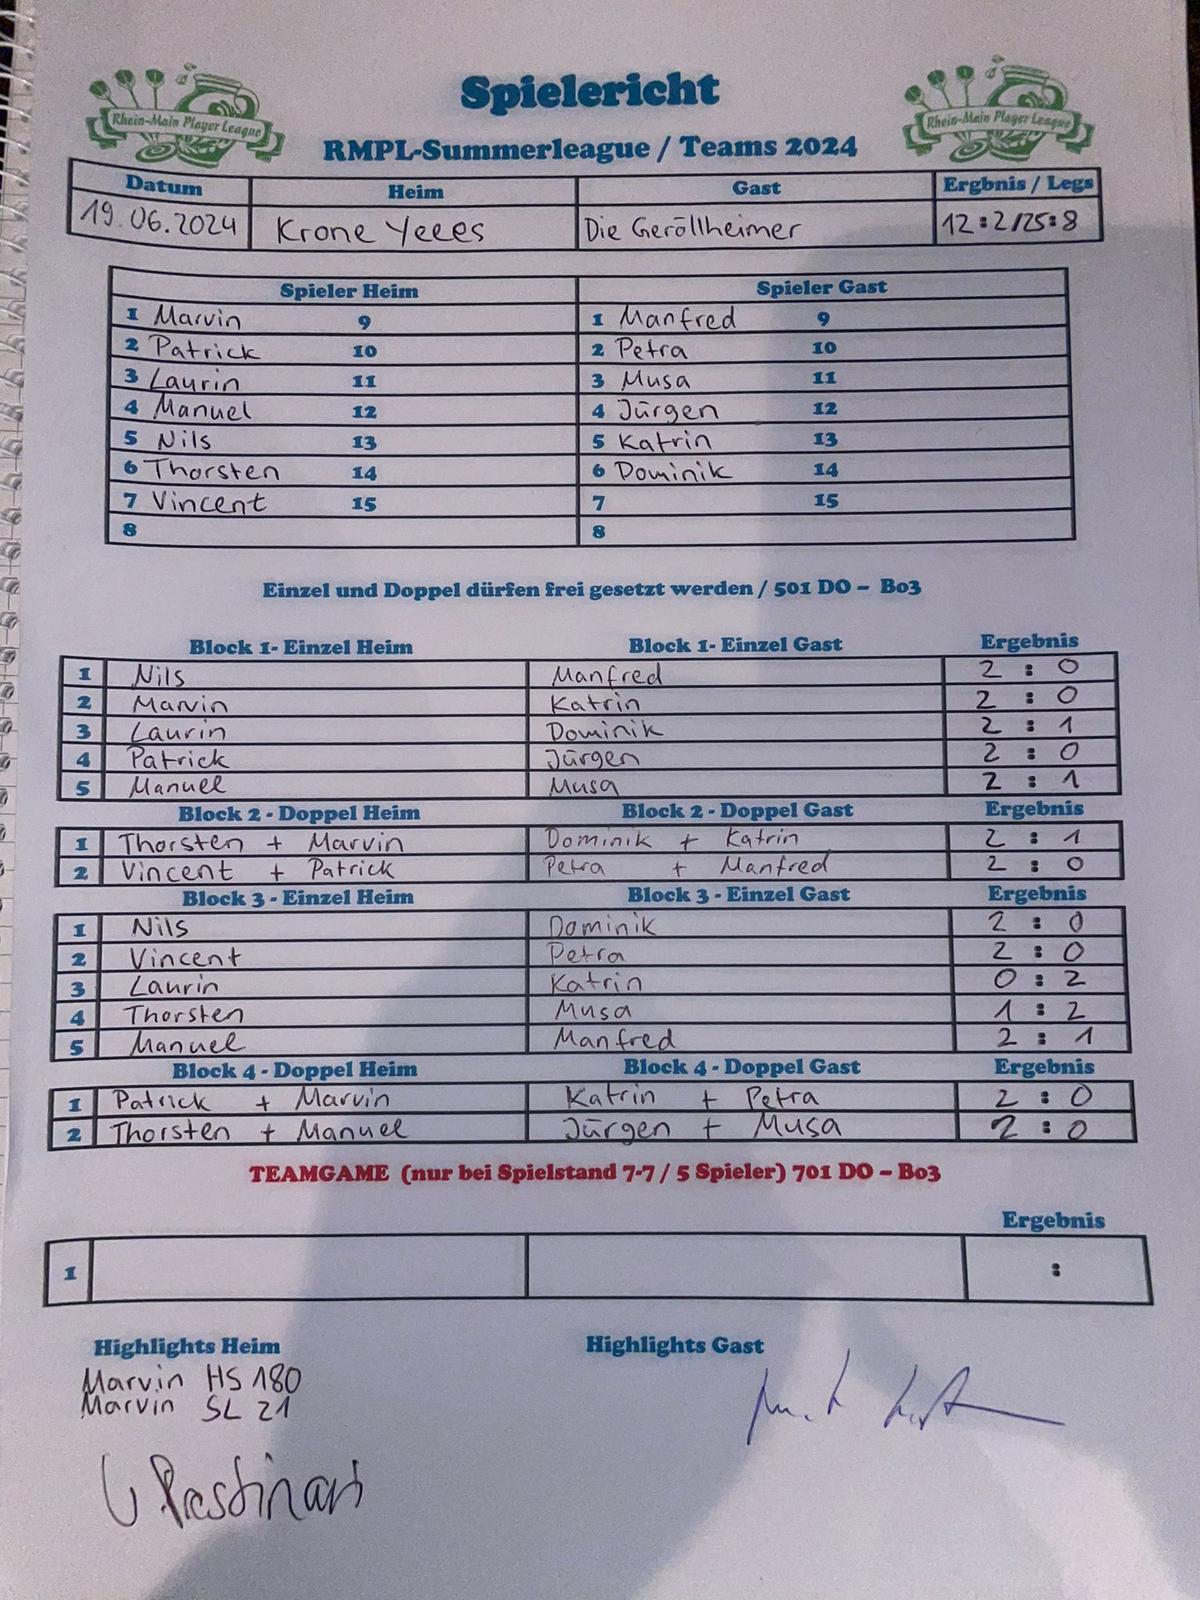 Spielericht
Rhein-Main Player League
Rhein-Main Player League
RMPL-Summerleague / Teams 2024
Datum Heim Gast Ergbnis / Legs
19.06.2024 Krone Yeees Die Geröllheimer 12:2/25:8
Spieler Heim Spieler Gast
1 Marvin 9 1 Manfred 9
2 Patrick 10 2 Petra 10
3 Laurin 11 3 Musa 11
4 Manuel 12 4 Jürgen 12
5 Nils 13 5 Katrin 13
6 Thorsten 14 6 Dominik 14
7 Vincent 15 7 15
8 8
Einzel und Doppel dürfen frei gesetzt werden / 501 DO – Bo3
Block 1- Einzel Heim Block 1- Einzel Gast Ergebnis
1 Nils Manfred 2 : 0
2 Marvin Katrin 2 : 0
3 Laurin Dominik 2 : 1
4 Patrick Jürgen 2 : 0
5 Manuel Musa 2 : 1
Block 2 - Doppel Heim Block 2 - Doppel Gast Ergebnis
1 Thorsten + Marvin Dominik + Katrin 2 : 1
2 Vincent + Patrick Petra + Manfred 2 : 0
Block 3 - Einzel Heim Block 3 - Einzel Gast Ergebnis
1 Nils Dominik 2 : 0
2 Vincent Petra 2 : 0
3 Laurin Katrin 0 : 2
4 Thorsten Musa 1 : 2
5 Manuel Manfred 2 : 1
Block 4 - Doppel Heim Block 4 - Doppel Gast Ergebnis
1 Patrick + Marvin Katrin + Petra 2 : 0
2 Thorsten + Manuel Jürgen + Musa 2 : 0
TEAMGAME (nur bei Spielstand 7-7 / 5 Spieler) 701 DO – Bo3
Ergebnis
1 :
Highlights Heim Highlights Gast
Marvin HS 180
Marvin SL 21